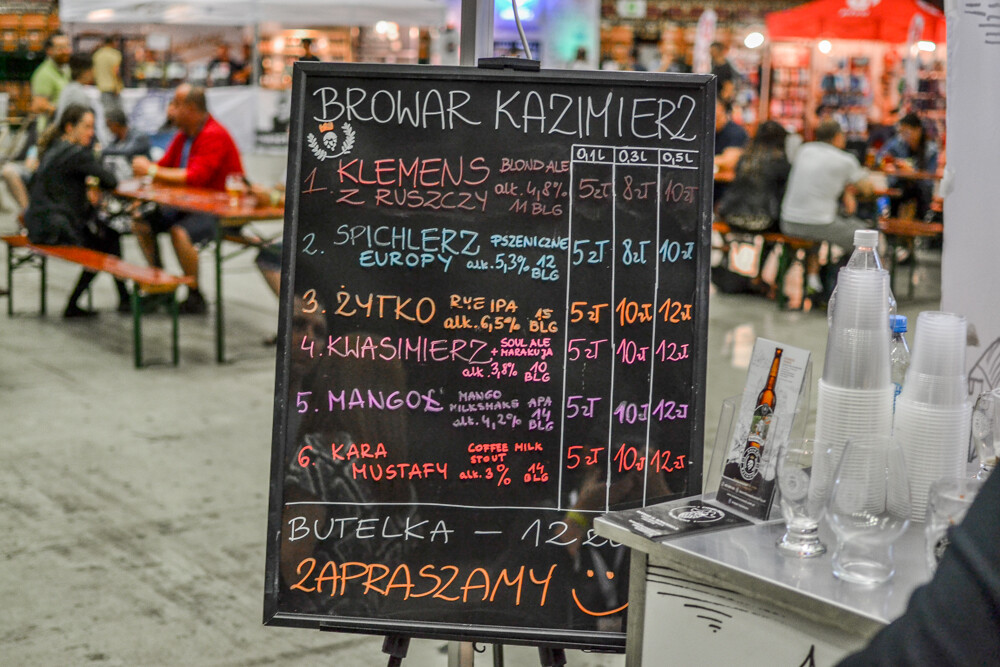 BROWAR KAZIMIERZ
0,1L 0,3L 0,5L
1. KLEMENS BLOND ALE 5zł 8zł 10zł
Z RUSZCZY alk. 4,8% 11 BLG
2. SPICHLERZ PSZENICZNE 5zł 8zł 10zł
EUROPY alk. 5,3% 12 BLG
3. ŻYTKO RYE IPA 5zł 10zł 12zł
alk. 6,5% 15 BLG
4. KWASIMIERZ SOUL ALE + MARAKUJA 5zł 10zł 12zł
alk. 3,8% 10 BLG
5. MANGOŁ MANGO MILKSHAKE APA 5zł 10zł 12zł
alk. 4,2% 14 BLG
6. KARA COFFEE MILK STOUT 5zł 10zł 12zł
MUSTAFY alk. 3% 14 BLG
BUTELKA – 12 zł
ZAPRASZAMY